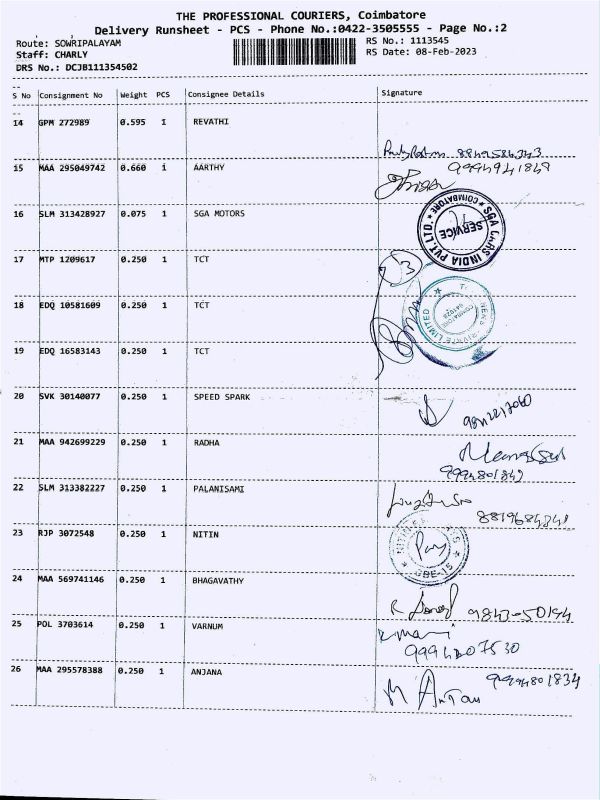 THE PROFESSIONAL COURIERS, Coimbatore
Delivery Runsheet - PCS - Phone No.:0422-3505555 - Page No.:2
Route: SOWRIPALAYAM RS No.: 1113545
Staff: CHARLY RS Date: 08-Feb-2023
DRS No.: DCJB111354502
S No Consignment No Weight PCS Consignee Details Signature
14 GPM 272989 0.595 1 REVATHI
15 MAA 295049742 0.660 1 AARTHY
9994941849
16 SLM 313428927 0.075 1 SGA MOTORS
SGA CARS INDIA PVT. LTD. ★ COIMBATORE ★
SERVICE
17 MTP 1209617 0.250 1 TCT
3
18 EDQ 10581609 0.250 1 TCT
19 EDQ 16583143 0.250 1 TCT
20 SVK 30140077 0.250 1 SPEED SPARK
21 MAA 942699229 0.250 1 RADHA
9994801849
22 SLM 313382227 0.250 1 PALANISAMI
8819684841
23 RJP 3072548 0.250 1 NITIN
NITIN
CBE-15
24 MAA 569741146 0.250 1 BHAGAVATHY
25 POL 3703614 0.250 1 VARNUM
26 MAA 295578388 0.250 1 ANJANA
9994801834